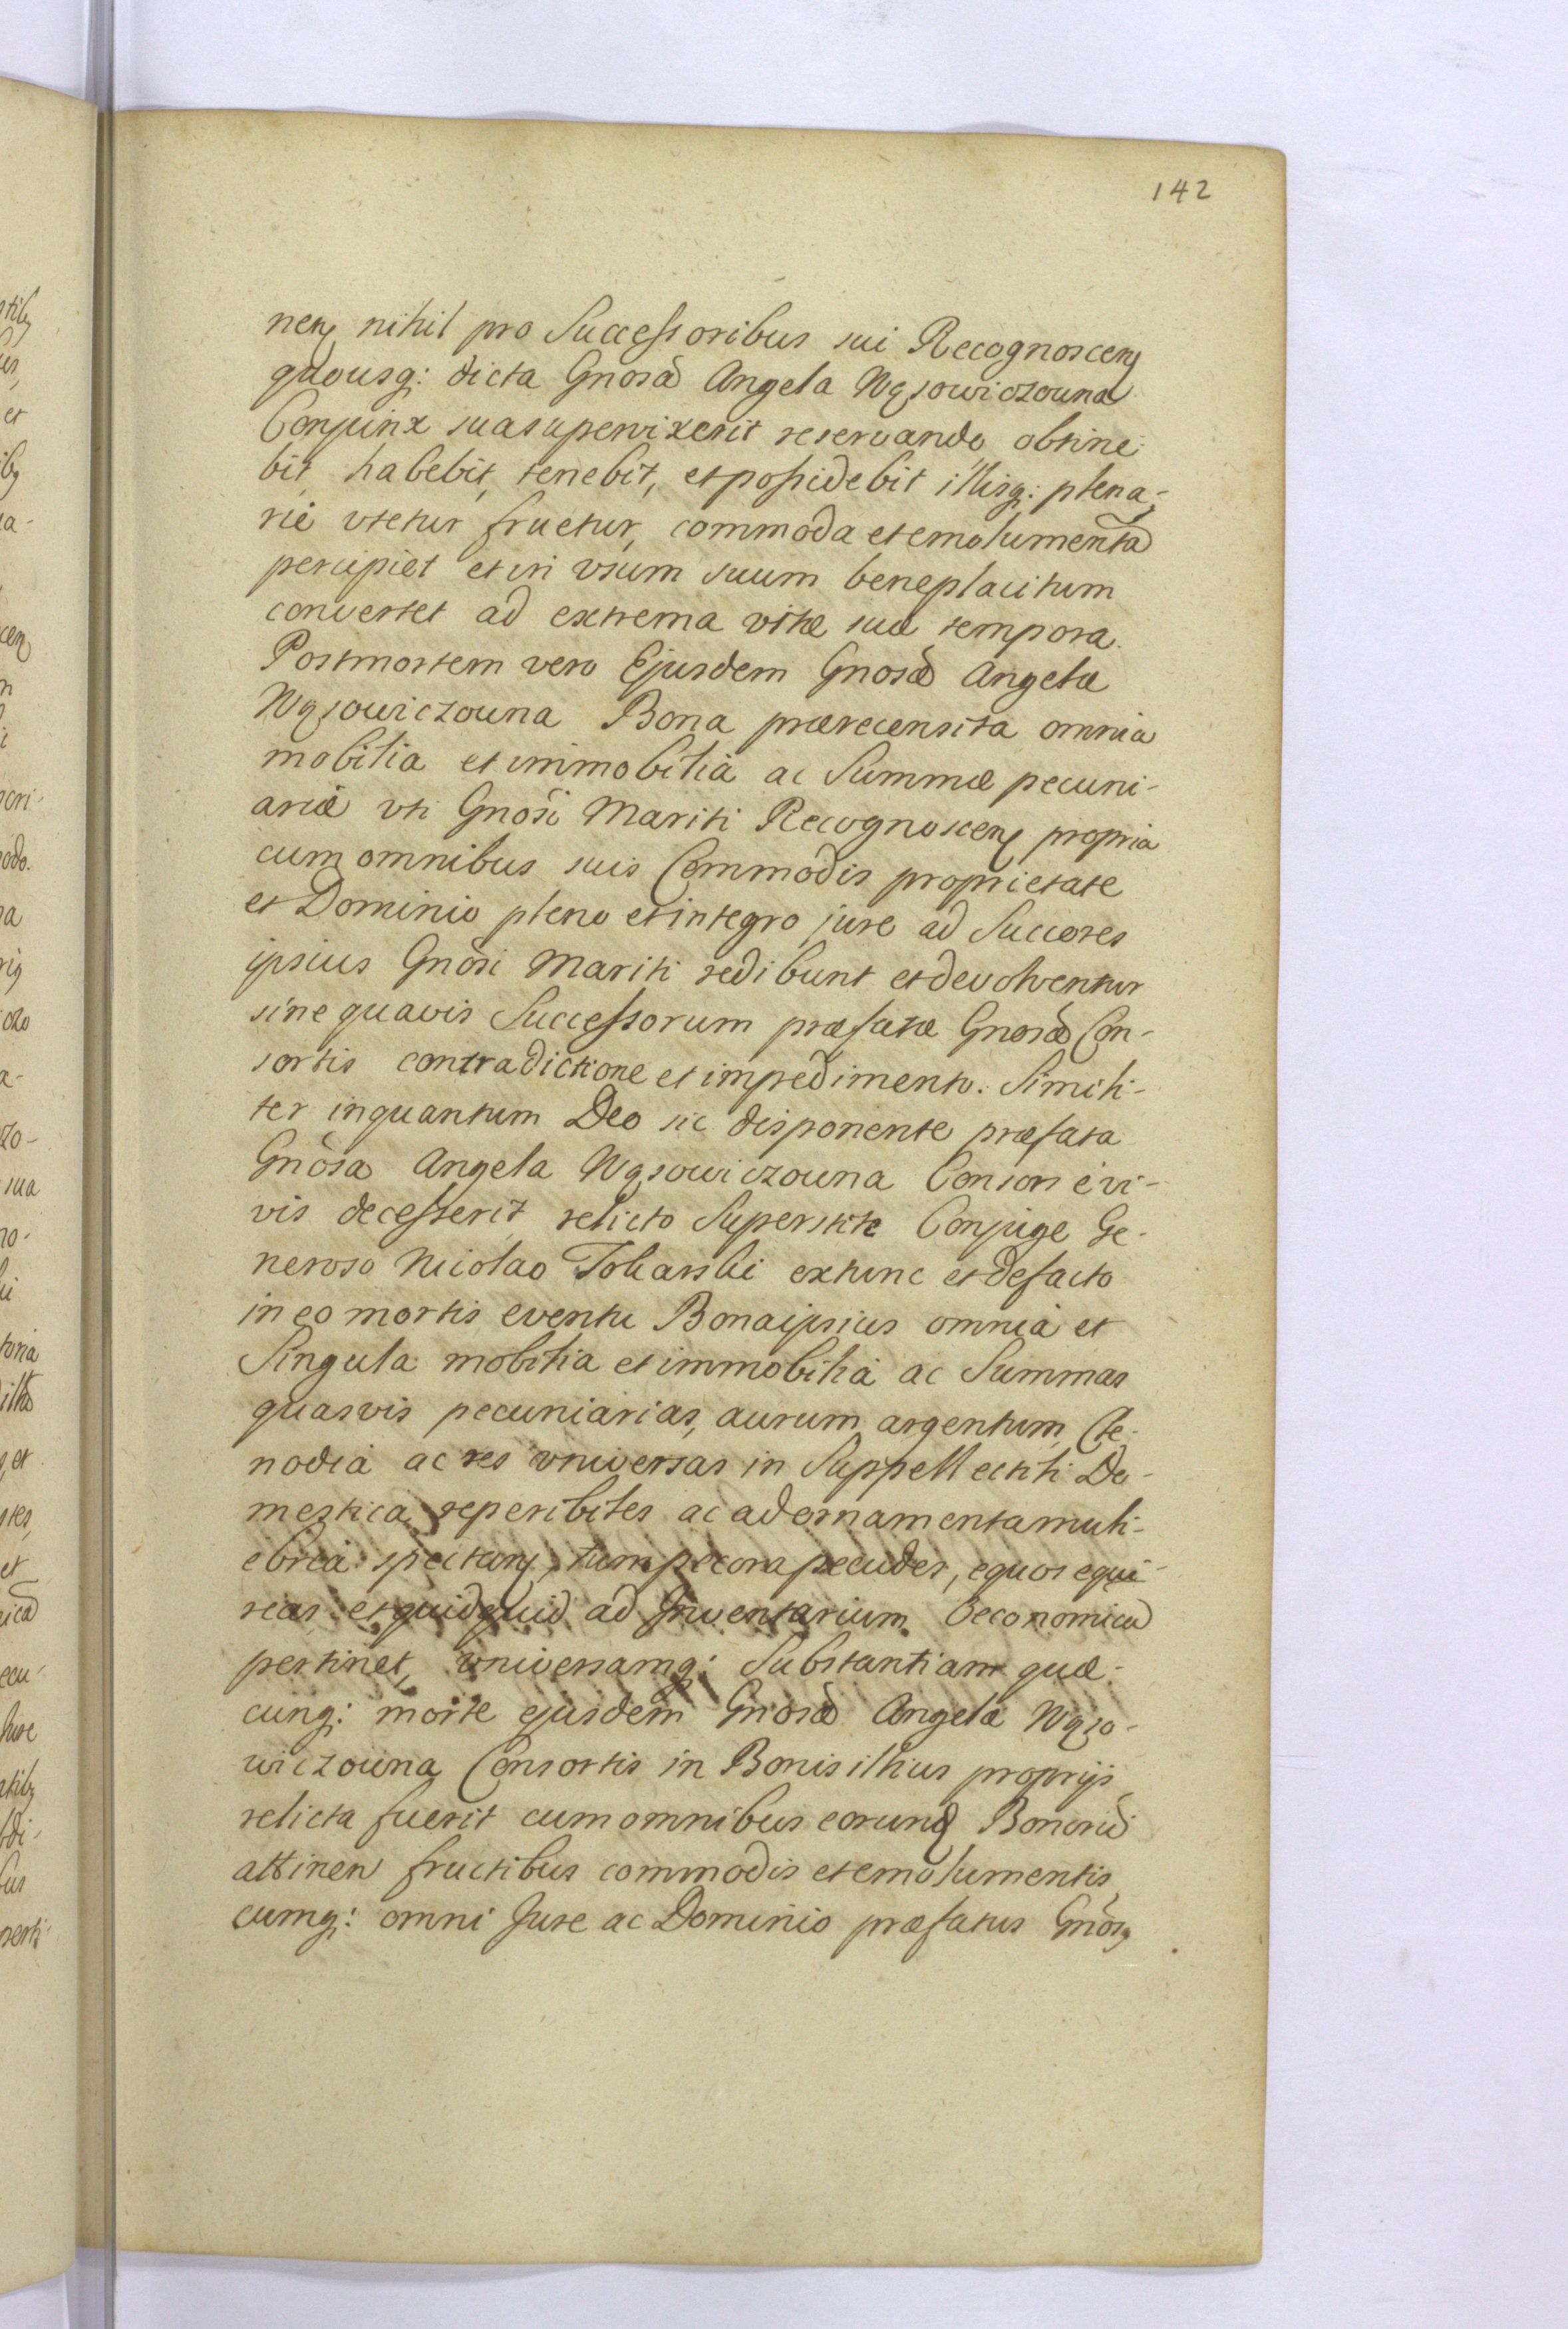 142
nen̄ nihil pro Successoribus sui Recognoscen̄
quousq: dicta Gnosa Angela Wąsowiczowna
Conjunx sua supervixerit reservando, obtine-
bit, habebit, tenebit, et possidebit illisq: plena-
rie vtetur fruetur, commoda et emolumenta
percipiet et in vsum suum beneplacitum
convertet ad extrema vitæ suæ tempora.
Postmortem vero Ejusdem Gnosæ Angelæ
Wąsowiczowna Bona prærecensita omnia
mobilia et immobilia ac Summæ pecuni-
ariæ vti Gnosi Mariti Recognoscen̄ propria
cum omnibus suis Commodis proprietate
et Dominio pleno et integro jure ad Succores
ipsius Gnosi Mariti redibunt et devolventur
sine quavis Successorum præfatæ Gnosæ Con-
sortis contradictione et impedimento. Simili-
ter inquantum Deo sic disponente præfata
Gnosa Angela Wąsowiczowna Consors e vi-
vis decesserit relicto Superstite Conjuge Ge-
neroso Nicolao Tokarski extunc et defacto
in eo mortis eventu Bona ipsius omnia et
Singula mobilia et immobilia ac Summas
quasvis pecuniarias, aurum argentum, Cle-
nodia ac res vniversas in Suppellectili Do-
mestica reperibiles ac ad ornamenta muli-
ebria spectan̄, tum pecora pecudes, equos equi-
reas et quidquid ad Inventarium Oeconomicū
pertinet, vniversamq: Substantiam quæ-
cunq: morte ejusdem Gnosæ Angelæ Wąso-
wiczowna Consortis in Bonis illius proprijs
relicta fuerit cum omnibus eorund Bonorū
attinen fructibus commodis et emolumentis
cumq: omni Jure ac Dominio præfatus Gnosꝯ